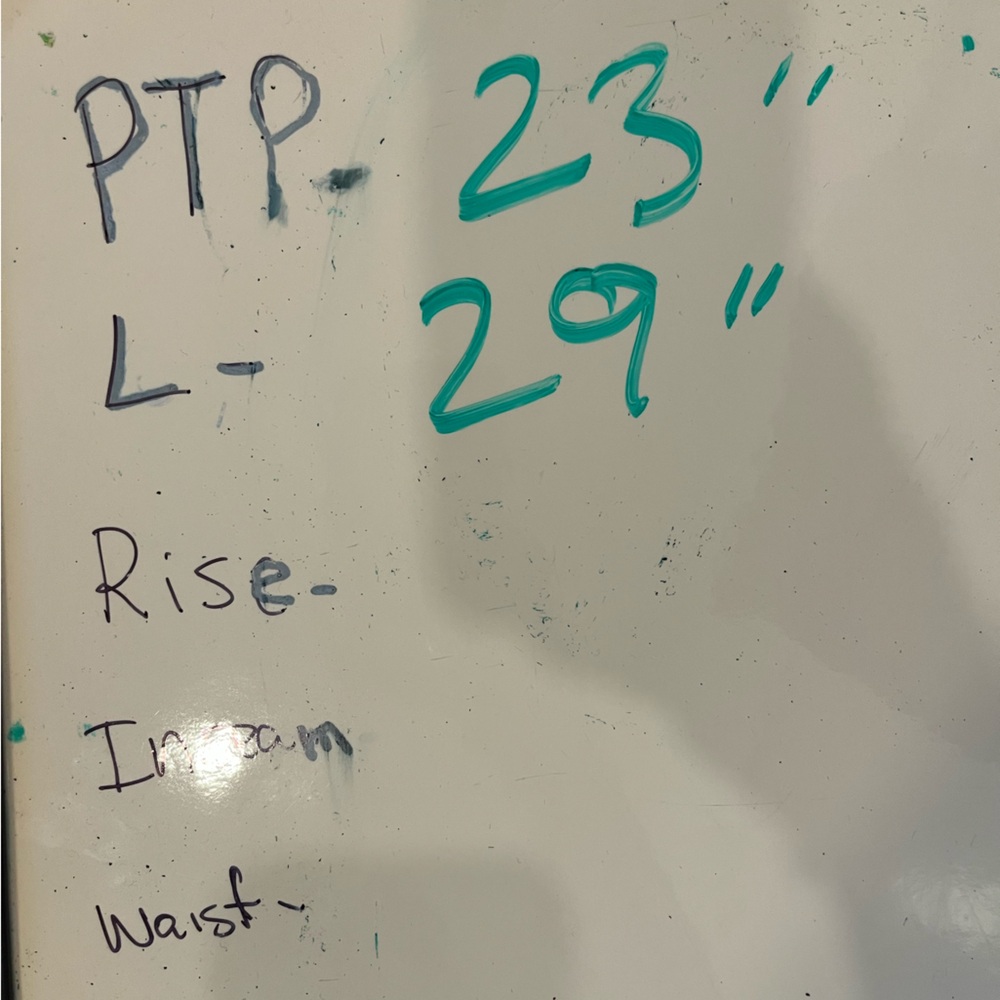 PTP- 23"
L - 29"
Rise-
Inseam
Waist-